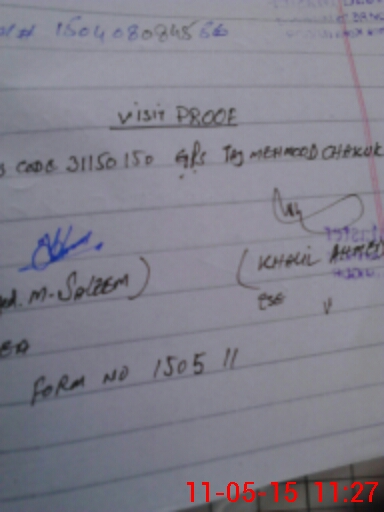 150408084566
VISIT PROOF
CODE 31150150 GPS TAJ MEHMOOD CHAKUK
M. SALEEM) (KHALIL AHMED
ESE
FORM NO 1505 11
11-05-15 11:27